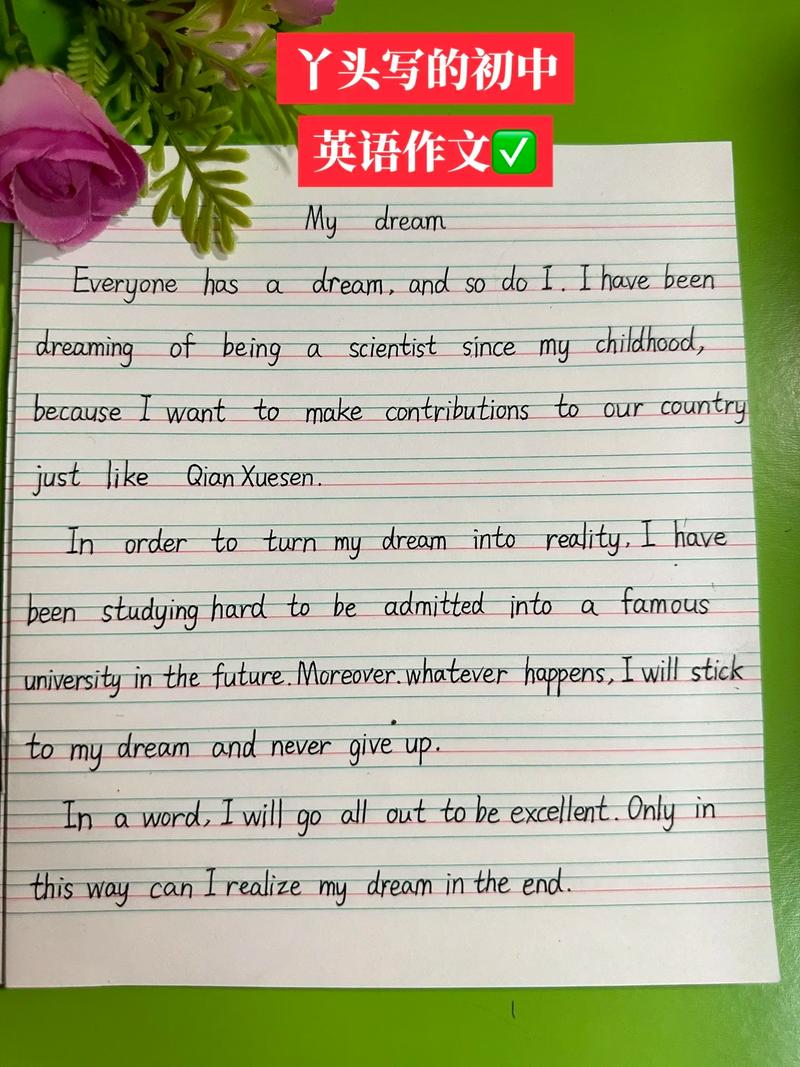 丫头写的初中
英语作文✅
My dream
Everyone has a dream, and so do I. I have been
dreaming of being a scientist since my childhood,
because I want to make contributions to our country
just like Qian Xuesen.
In order to turn my dream into reality, I have
been studying hard to be admitted into a famous
university in the future. Moreover. whatever happens, I will stick
to my dream and never give up.
In a word, I will go all out to be excellent. Only in
this way can I realize my dream in the end.